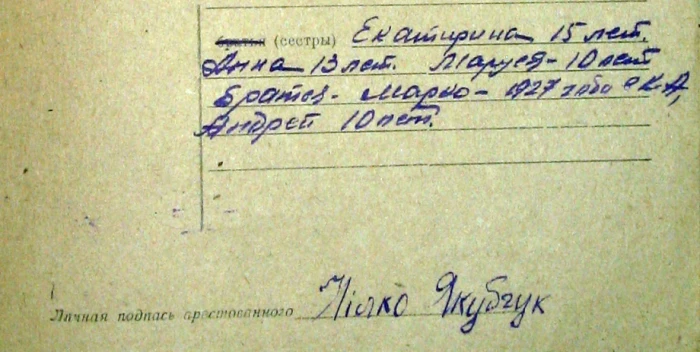 братья (сестры) Екатирина 15 лет.
Анна 13 лет. Маруся - 10 лет
Братья - Марко - 1927 года в К.А,
Андрей 10 лет.
Личная подпись арестованного Якубчук